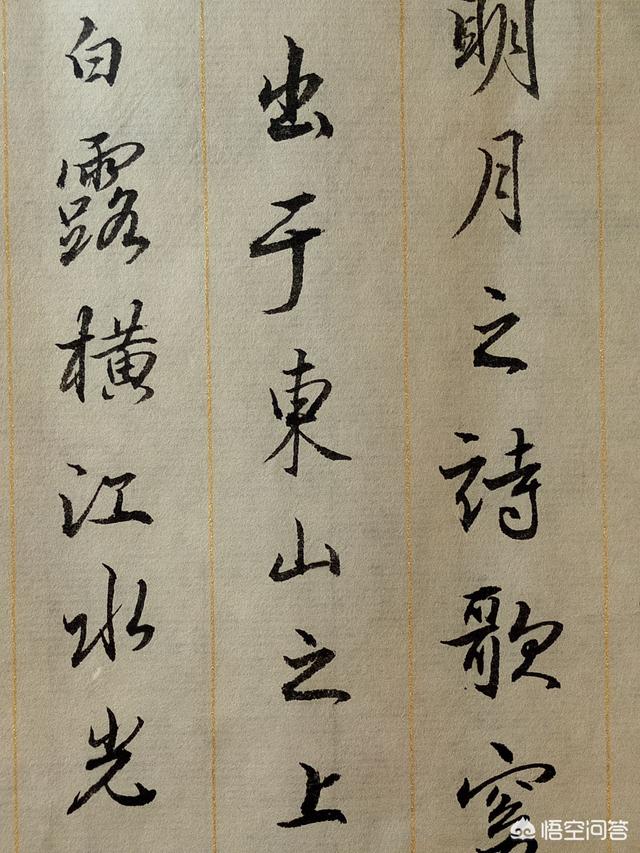 明月之詩歌窈
出于東山之上
白露橫江水光
悟空问答